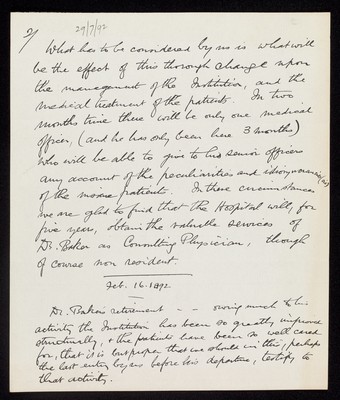 2/
29/7/92
What has to be considered by us is what will
be the effect of this thorough change upon
the management of the Institution, and the
medical treatment of the patients. In two
months time there will be only one medical
officer, (and he has only been here 3 months)
who will be able to give to his senior officers
any account of the peculiarities and idiosyncrasies
of the insane patients. In these circumstances
we are glad to find that the Hospital will, for
five years, obtain the valuable services of
Dr. Baker as Consulting Physician, though
of course non resident
Feb. 16. 1892
Dr. Baker's retirement - - owing much to his
activity the Institution has been so greatly improved
structurally, & the patients have been so well cared
for, that it is but proper that we should in this, perhaps
the last entry by us before his departure, testify to
that activity.